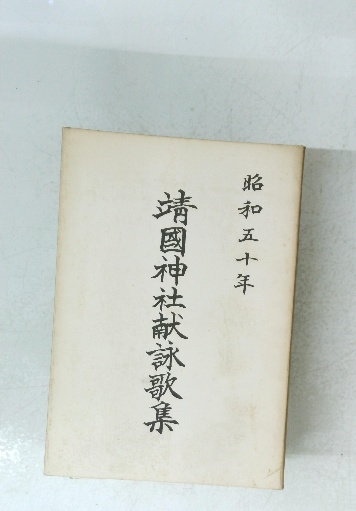 昭和五十年
靖國神社献詠歌集